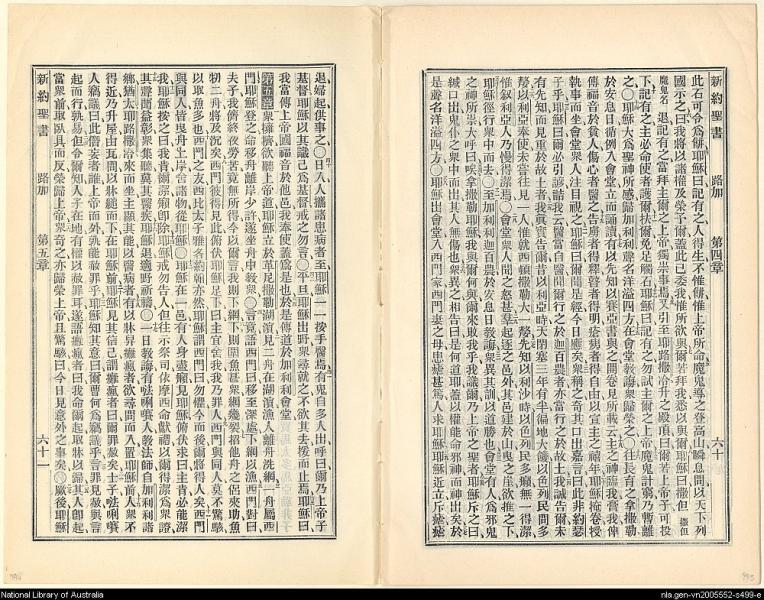 新約聖書 路加 第四章 六十
此石可令爲餅耶穌曰記有之人得生不惟餅惟上帝所命魔鬼導之登高山瞬息間以天下列
國示之曰我將以諸權及榮予爾蓋此已委我惟所欲與爾若拜我悉以與爾耶穌曰撒但
魔鬼名退記有之當拜主爾之上帝獨崇事焉又引至耶路撒冷升之殿頂曰爾若上帝子可投
下記有之主必命使者護爾扶爾免足觸石耶穌曰記有之勿試主爾之上帝魔鬼計窮乃暫離
之〇耶穌大爲聖神所感歸加利利聲名洋溢四方在會堂教誨衆歸榮之〇往長育之拿撒勒
於安息日循例入會堂立而誦讀有以先知以賽亞書與之開卷見所載云主之神臨我膏我俾
傳福音於貧人傷心者醫之告虜者得釋瞽者得明瘡痍者得自由以宣主之禧年耶穌捲卷授
執事而坐會堂衆人注目視之耶穌曰爾聞是經今日應矣衆稱之奇其口出嘉言曰此非約瑟
子乎耶穌曰爾必引諺語我云醫當自醫聞爾行之於迦百農者亦當行之於故土我誠告爾未
有先知而見重於故土者我眞實告爾昔以利亞時天閉塞三年有半徧地大饑以色列民間多
嫠以利亞奉使未嘗往見一人惟就西頓撒勒大一嫠先知以利沙時以色列民多癩無一得潔
惟叙利亞人乃慢得潔焉〇會堂衆人聞之怒甚羣起逐之邑外其邑建於山曳之崖欲推之下
耶穌徑行衆中而去〇至加利利迦百農於安息日教誨衆異其訓以道勝也會堂有人爲邪鬼
之神所祟大呼曰唉拿撒勒耶穌我與爾何與爾來敗我乎我識爾乃上帝之聖者耶穌斥之曰
緘口出鬼仆之衆中而出其人無傷也衆異之相告曰是何道耶蓋以權能命邪神而神出矣於
是聲名洋溢四方〇耶穌出會堂入西門家西門妻之母患瘧甚篤人求耶穌耶穌近立斥瘧瘧
退婦起供事之〇日入人攜諸患病者至耶穌一一按手醫焉有鬼自多人出呼曰爾乃上帝子
基督耶穌以其識己爲基督戒之勿言〇平旦耶穌出野衆尋就之不欲其去援而止焉耶穌曰
我當傳上帝國福音於他邑我奉使蓋爲是也於是傳道於加利利會堂
第五章 衆擁擠欲聽上帝道耶穌立於革尼撒勒湖濱見二舟在湖濱漁人離舟洗網一舟屬西
門耶穌登之命移舟離岸少許遂坐舟中教衆〇言竟語西門曰移至深處下網以漁西門對曰
夫子我儕終夜勞苦竟無所得今以爾言我則下網下則圍魚甚衆網幾裂招他舟之侶來助魚
牣二舟將及沉矣西門彼得見此俯伏耶穌足下曰主宜舍我我乃罪人西門與同人莫不驚駭
以取魚多也西門之友西比太子雅各約翰亦然耶穌謂西門曰勿懼今而後爾將得人矣西門
與同人皆曳舟上岸舍諸物從耶穌〇耶穌在一邑有人身盡癩見耶穌俯伏求曰主肯必能潔
我耶穌按之曰我肯爾潔癩卽除耶穌戒勿告人但往示祭司依摩西命獻禮以爾得潔爲衆證
其聲蘭益彰衆集聽莫其醫疾耶穌退適野祈禱〇一日教誨有𠵽唎㘔人教法師自加利利諸
鄉猶太耶路撒冷來而坐主顯其能以醫病者有以牀舁癱瘋者欲尋間而入置耶穌前人衆不
得近乃升屋由瓦間以牀縋而下在耶穌前耶穌見其信己謂癱瘋者曰爾罪赦矣士子𠵽唎㘔
人竊議曰此僭妄者誰上帝而外孰能赦罪乎耶穌知其意曰爾曹何爲竊議乎言罪見赦與言
起而行孰易但令爾知人子在地有權以赦罪耳遂語癱瘋者曰我命爾起取牀以歸其人卽起
當衆前取臥具而反榮歸上帝衆奇之亦歸榮上帝且驚駭曰今日見意外之事矣〇厥後耶穌
新約聖書 路加 第五章 六十一
National Library of Australia
nla.gen-vn2005552-s499-e